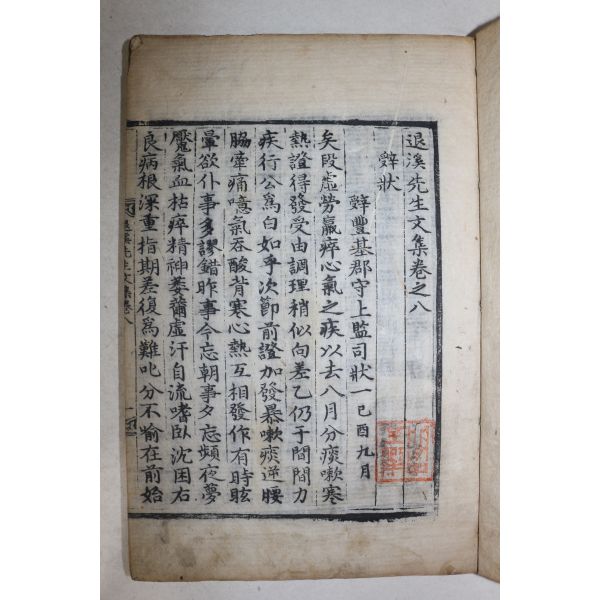 退溪先生文集卷之八
辭狀
辭豐基郡守上監司狀一 己酉九月
矣段虛勞羸瘁心氣之疾以去八月分痰嗽寒
熱證得發受由調理稍似向差乙仍于間間力
疾行公爲白如乎次節前證加發暴嗽痰逆腰
脇牽痛噫氣吞酸背寒心熱互相發作有時眩
暈欲仆事多謬錯昨事今忘朝事夕忘頻夜夢
魘氣血枯瘁精神萎薾虛汗自流嗜臥沈困右
良病根深重指期差復爲難叱分不喩在前始
退溪先生文集卷八
一